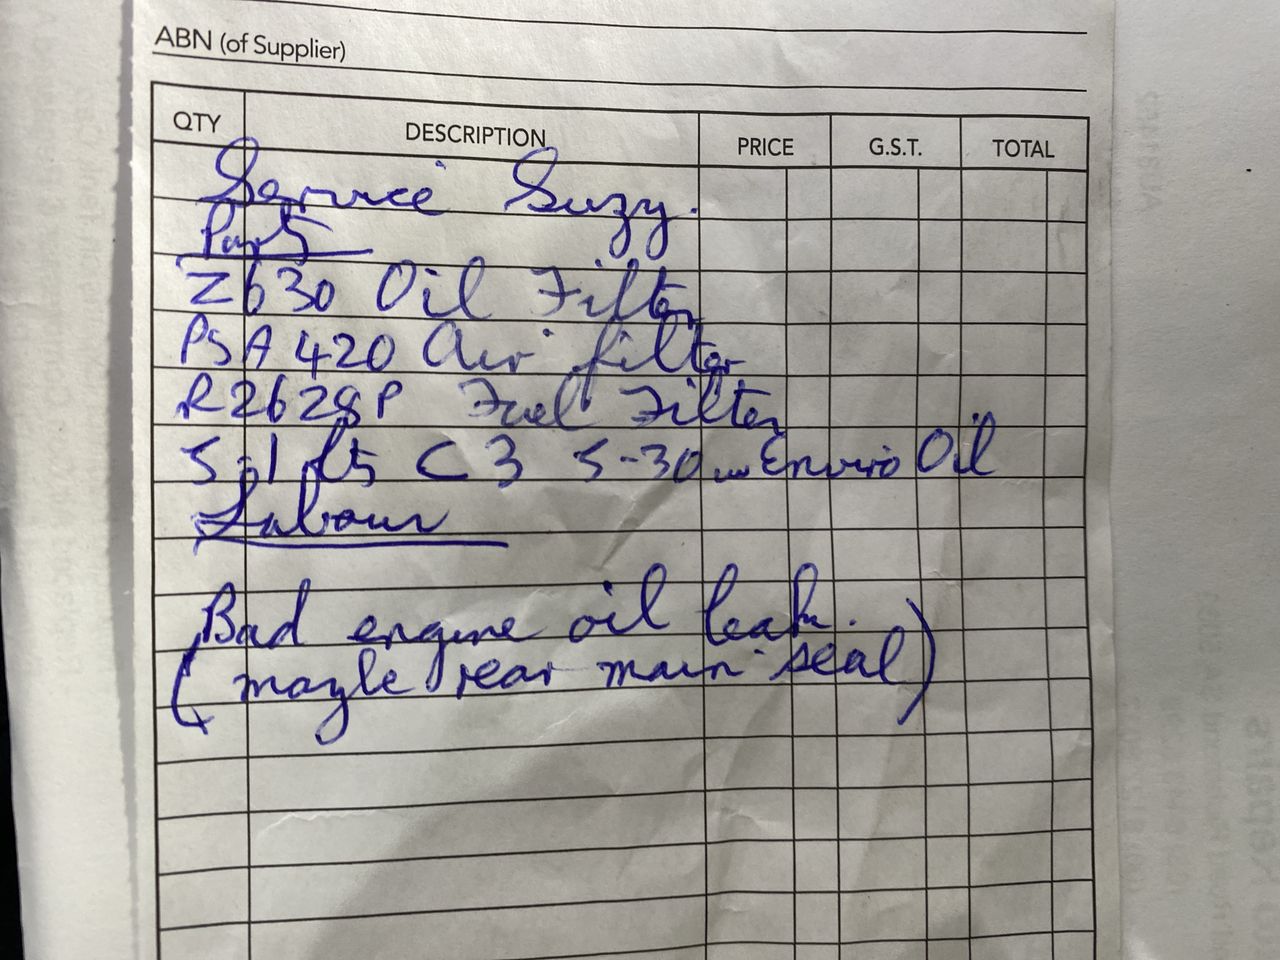 ABN (of Supplier)
QTY DESCRIPTION PRICE G.S.T. TOTAL
Service Suzy.
Parts
Z630 Oil Filter
PSA 420 Air filter
R2628P Fuel Filter
5.1 lts C3 5-30w Enviro Oil
Labour
Bad engine oil leak.
(maybe rear main seal)